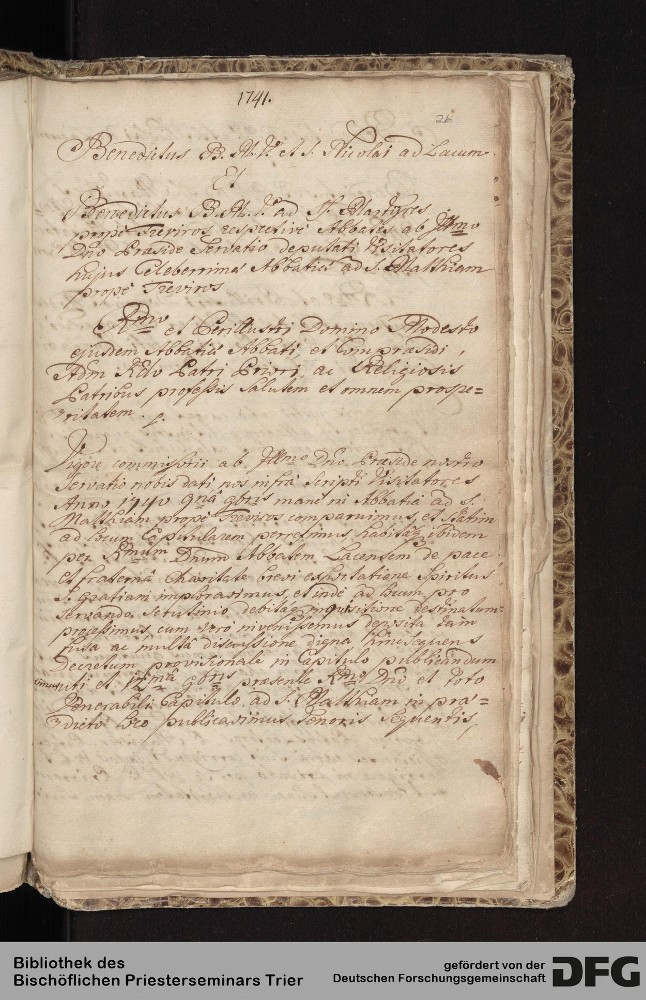 1741.
26
Benedictus B. M. V. et S. Nicolai ad Lacum
Et
Benedictus B. M. V. ad SS. Martyres
prope Treviros respective Abbates ab Illmo
Dno Praeside Servatio deputati Visitatores
hujus Celeberrimae Abbatiae ad S. Matthiam
prope Treviros
Rdmo et Perillustri Domino Modesto
ejusdem Abbatiae Abbati, et Compraesidi,
Adm Rdo Patri Priori, ac Religiosis
Patribus professis Salutem et omnem prospe=
ritatem. p.
Vigore commissorii ab Illmo Dno Praeside nostro
Servatio nobis dati nos infra scripti Visitatores
Anno 1740 9na 9bris mane in Abbatia ad S.
Matthiam prope Treviros comparuimus, et statim
ad locum Capitularem perreximus, habitaq ibidem
per Rmum Dnum Abbatem Lacensem de pace
et fraterna Charitate brevi exhortatione Spiritus
S. gratiam imploravimus, et inde ad locum pro
servando Scrutinio, debitaq inquisitione destinatum
processimus, cum vero invenissemus deposita tam
fusa ac multa discussione digna hinc sequens
Decretum provisionale in Capitulo publicandum
uti et 12ma 9bris praesente Rmo Dno et toto
Venerabili Capitulo ad S. Matthiam in prae=
dicto loco publicavimus tenoris sequentis,
Bibliothek des
Bischöflichen Priesterseminars Trier
gefördert von der
Deutschen Forschungsgemeinschaft
DFG